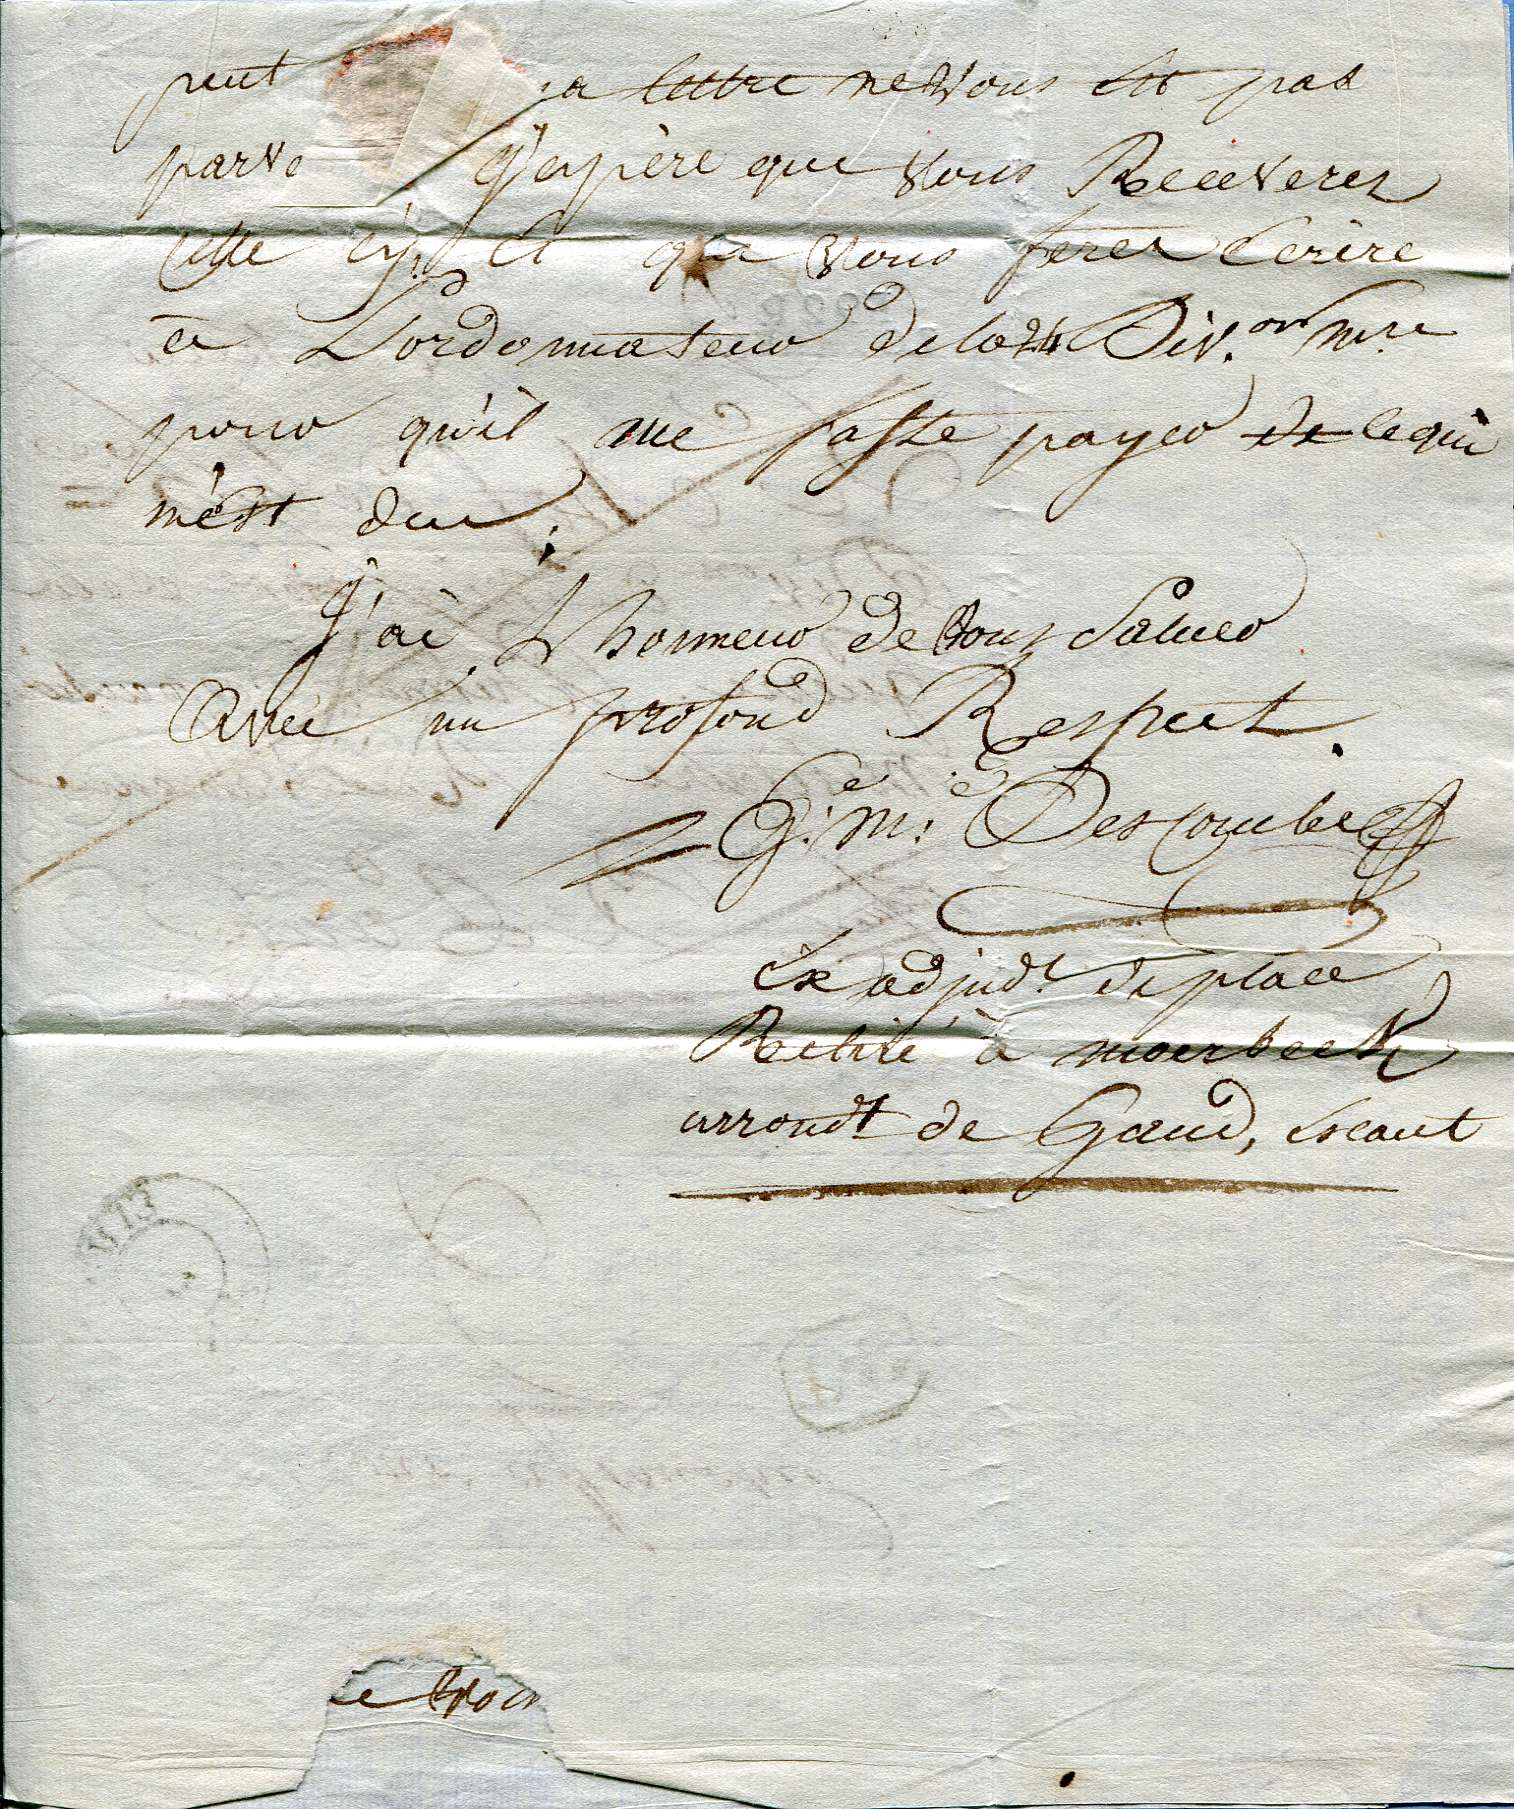 peut ma lettre ne Vous est pas
parve j'espère que Vous Receverez
cette cy, Et que Vous ferez Ecrire
a L'ordonnateur de la 24 Div.on m.re
pour qu'il me fasse payer de ce qui
m'est du.
J'ai L'honneur de Vous Saluer
Avec un profond Respect.
G.e M.e Descombes
Ex adjud.t de place
Retiré à moerbeck
arrond.t de Gand, Escaut